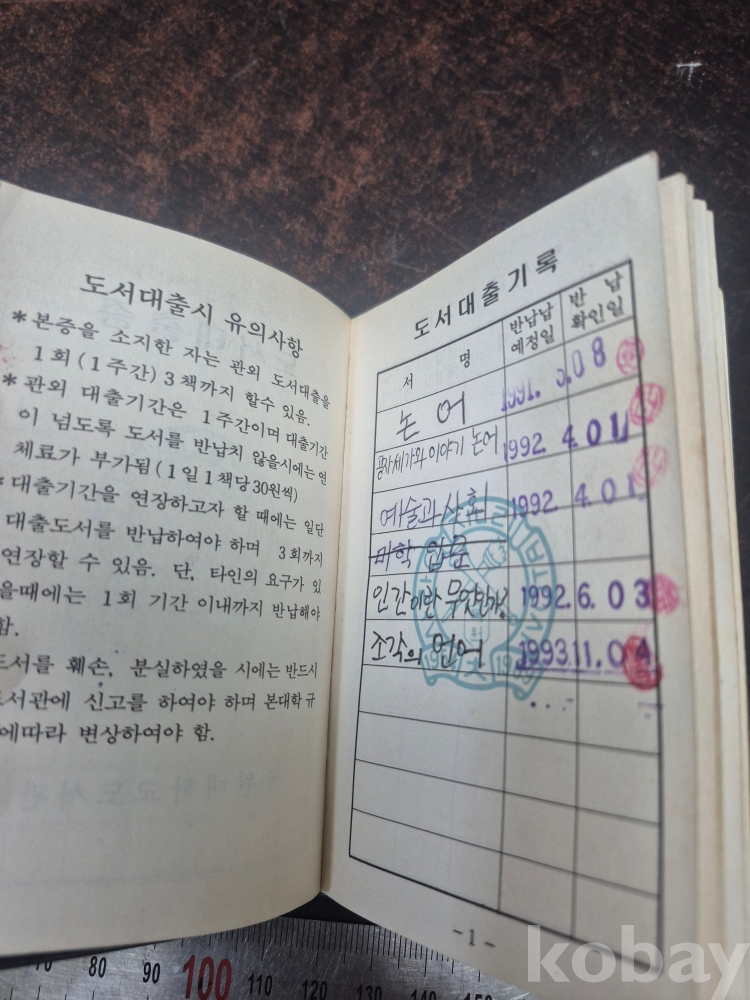 도서대출시 유의사항
*본증을 소지한 자는 관외 도서대출을
1회(1주간)3책까지 할수 있음.
*관외 대출기간은 1주간이며 대출기간
이 넘도록 도서를 반납치 않을시에는 연
체료가 부가됨(1일1책당30원씩)
*대출기간을 연장하고자 할 때에는 일단
대출도서를 반납하여야 하며 3회까지
연장할 수 있음. 단, 타인의 요구가 있
을때에는 1회 기간 이내까지 반납해야
함.
도서를 훼손, 분실하였을 시에는 반드시
도서관에 신고를 하여야 하며 본대학 규
에따라 변상하여야 함.
도서대출기록
서 명 반납납 예정일 반 납 확인일
논어 1991. 08
이야기 논어 1992 4.01
예술과 1992 4.01
미학 입문
인간이란 무엇인가? 1992.6.03
조각의 언어 1993.11.04
-1-
70 80 90 100 110 120 130 140 150
kobay